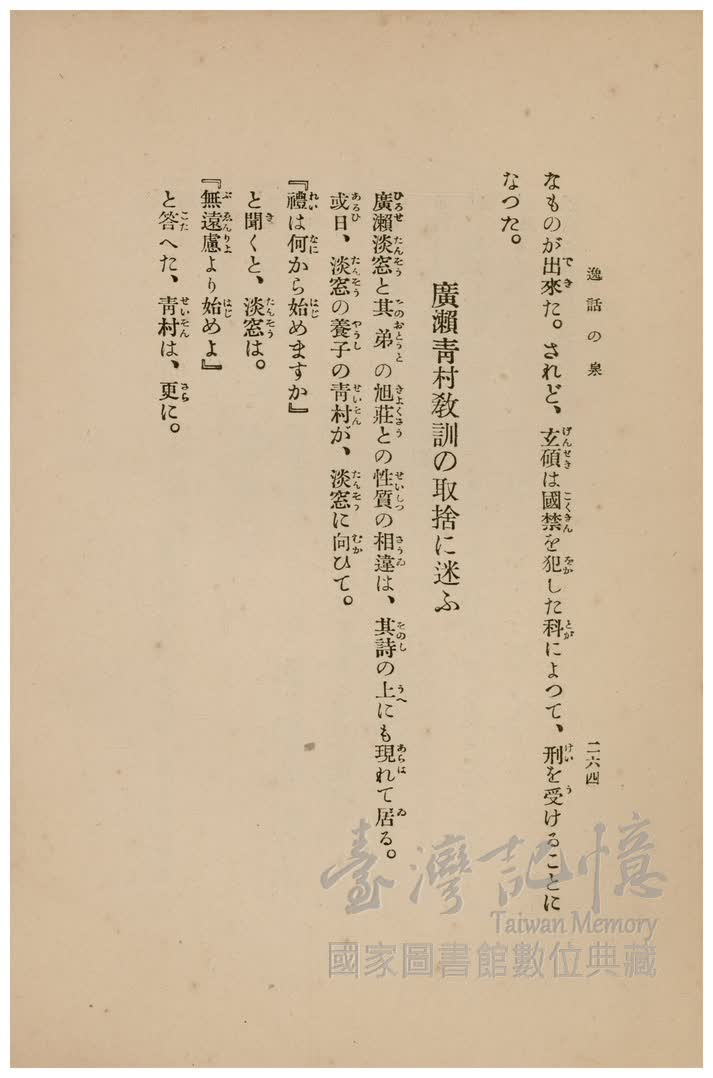 逸話の泉
二六四
なものが出來た。されど、玄碩は國禁を犯した科によつて、刑を受けることに
なつた。
廣瀨靑村敎訓の取捨に迷ふ
廣瀨淡窓と其弟の旭莊との性質の相違は、其詩の上にも現れて居る。
或日、淡窓の養子の靑村が、淡窓に向ひて。
『禮は何から始めますか』
と聞くと、淡窓は。
『無遠慮より始めよ』
と答へた、靑村は、更に。
臺灣記憶
Taiwan Memory
國家圖書館數位典藏